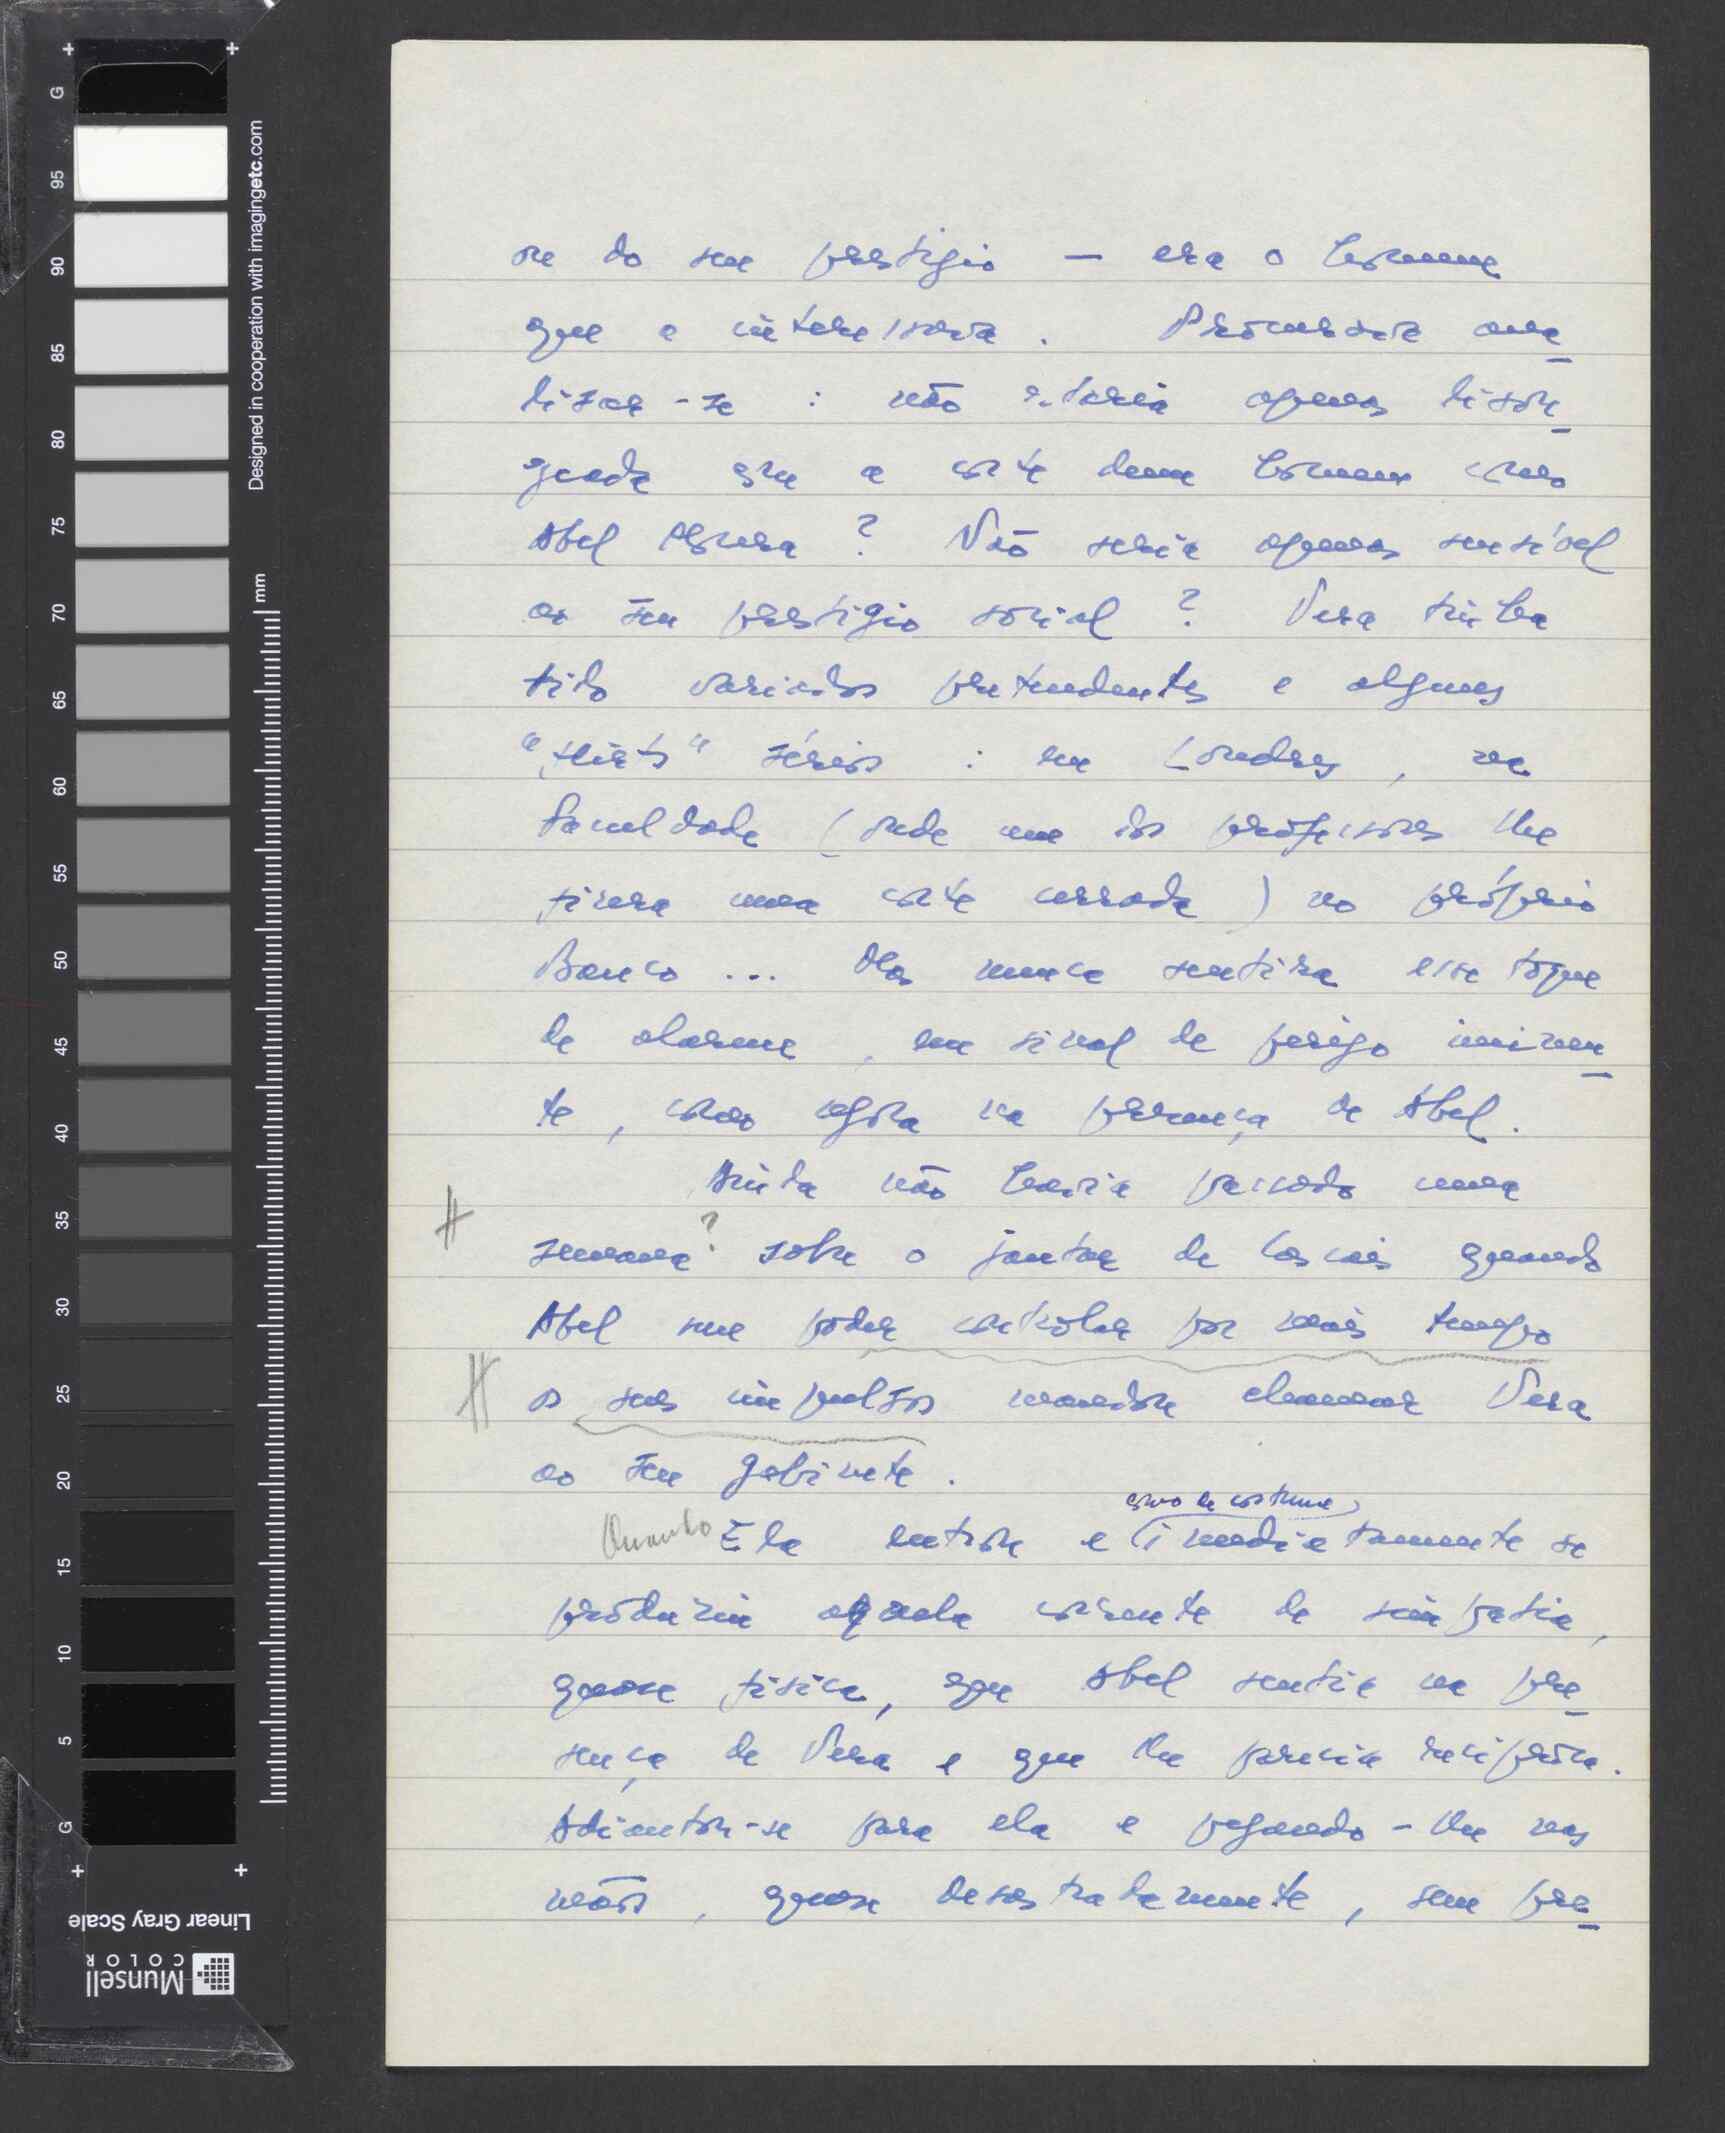 ou do seu prestigio — era o homem
que a interessava. Procurava ana
lisar-se : não estaria apenas lison
geada com a corte dum homem como
Abel Moura ? Não seria apenas sensível
ao seu prestigio social ? Vera tinha
tido variados pretendentes e alguns
"flirts" sérios : em Londres, na
Faculdade (onde um dos professores lhe
fizera uma corte cerrada) no próprio
Banco ... Mas nunca sentira esse toque
de alarme, um sinal de perigo iminen
te, como agora na presença de Abel.
Ainda não havia passado uma
semana ? sobre o jantar de Cascais quando
Abel sem poder controlar por mais tempo
os seus impulsos mandou chamar Vera
ao seu gabinete.
como de costume
Quando Ela entrou e (imediatamente se
produziu aquela corrente de simpatia,
quase fisica, que Abel sentia na pre
sença de Vera e que lhe parecia reciproca.
Adiantou-se para ela e pegando-lhe nas
mãos, quase desastradamente, sem pre
G 95 90 85 80 75 70 65 60 55 50 45 40 35 30 25 20 15 10 5 G
Designed in cooperation with imagingetc.com
mm
Linear Gray Scale
Munsell
COLOR